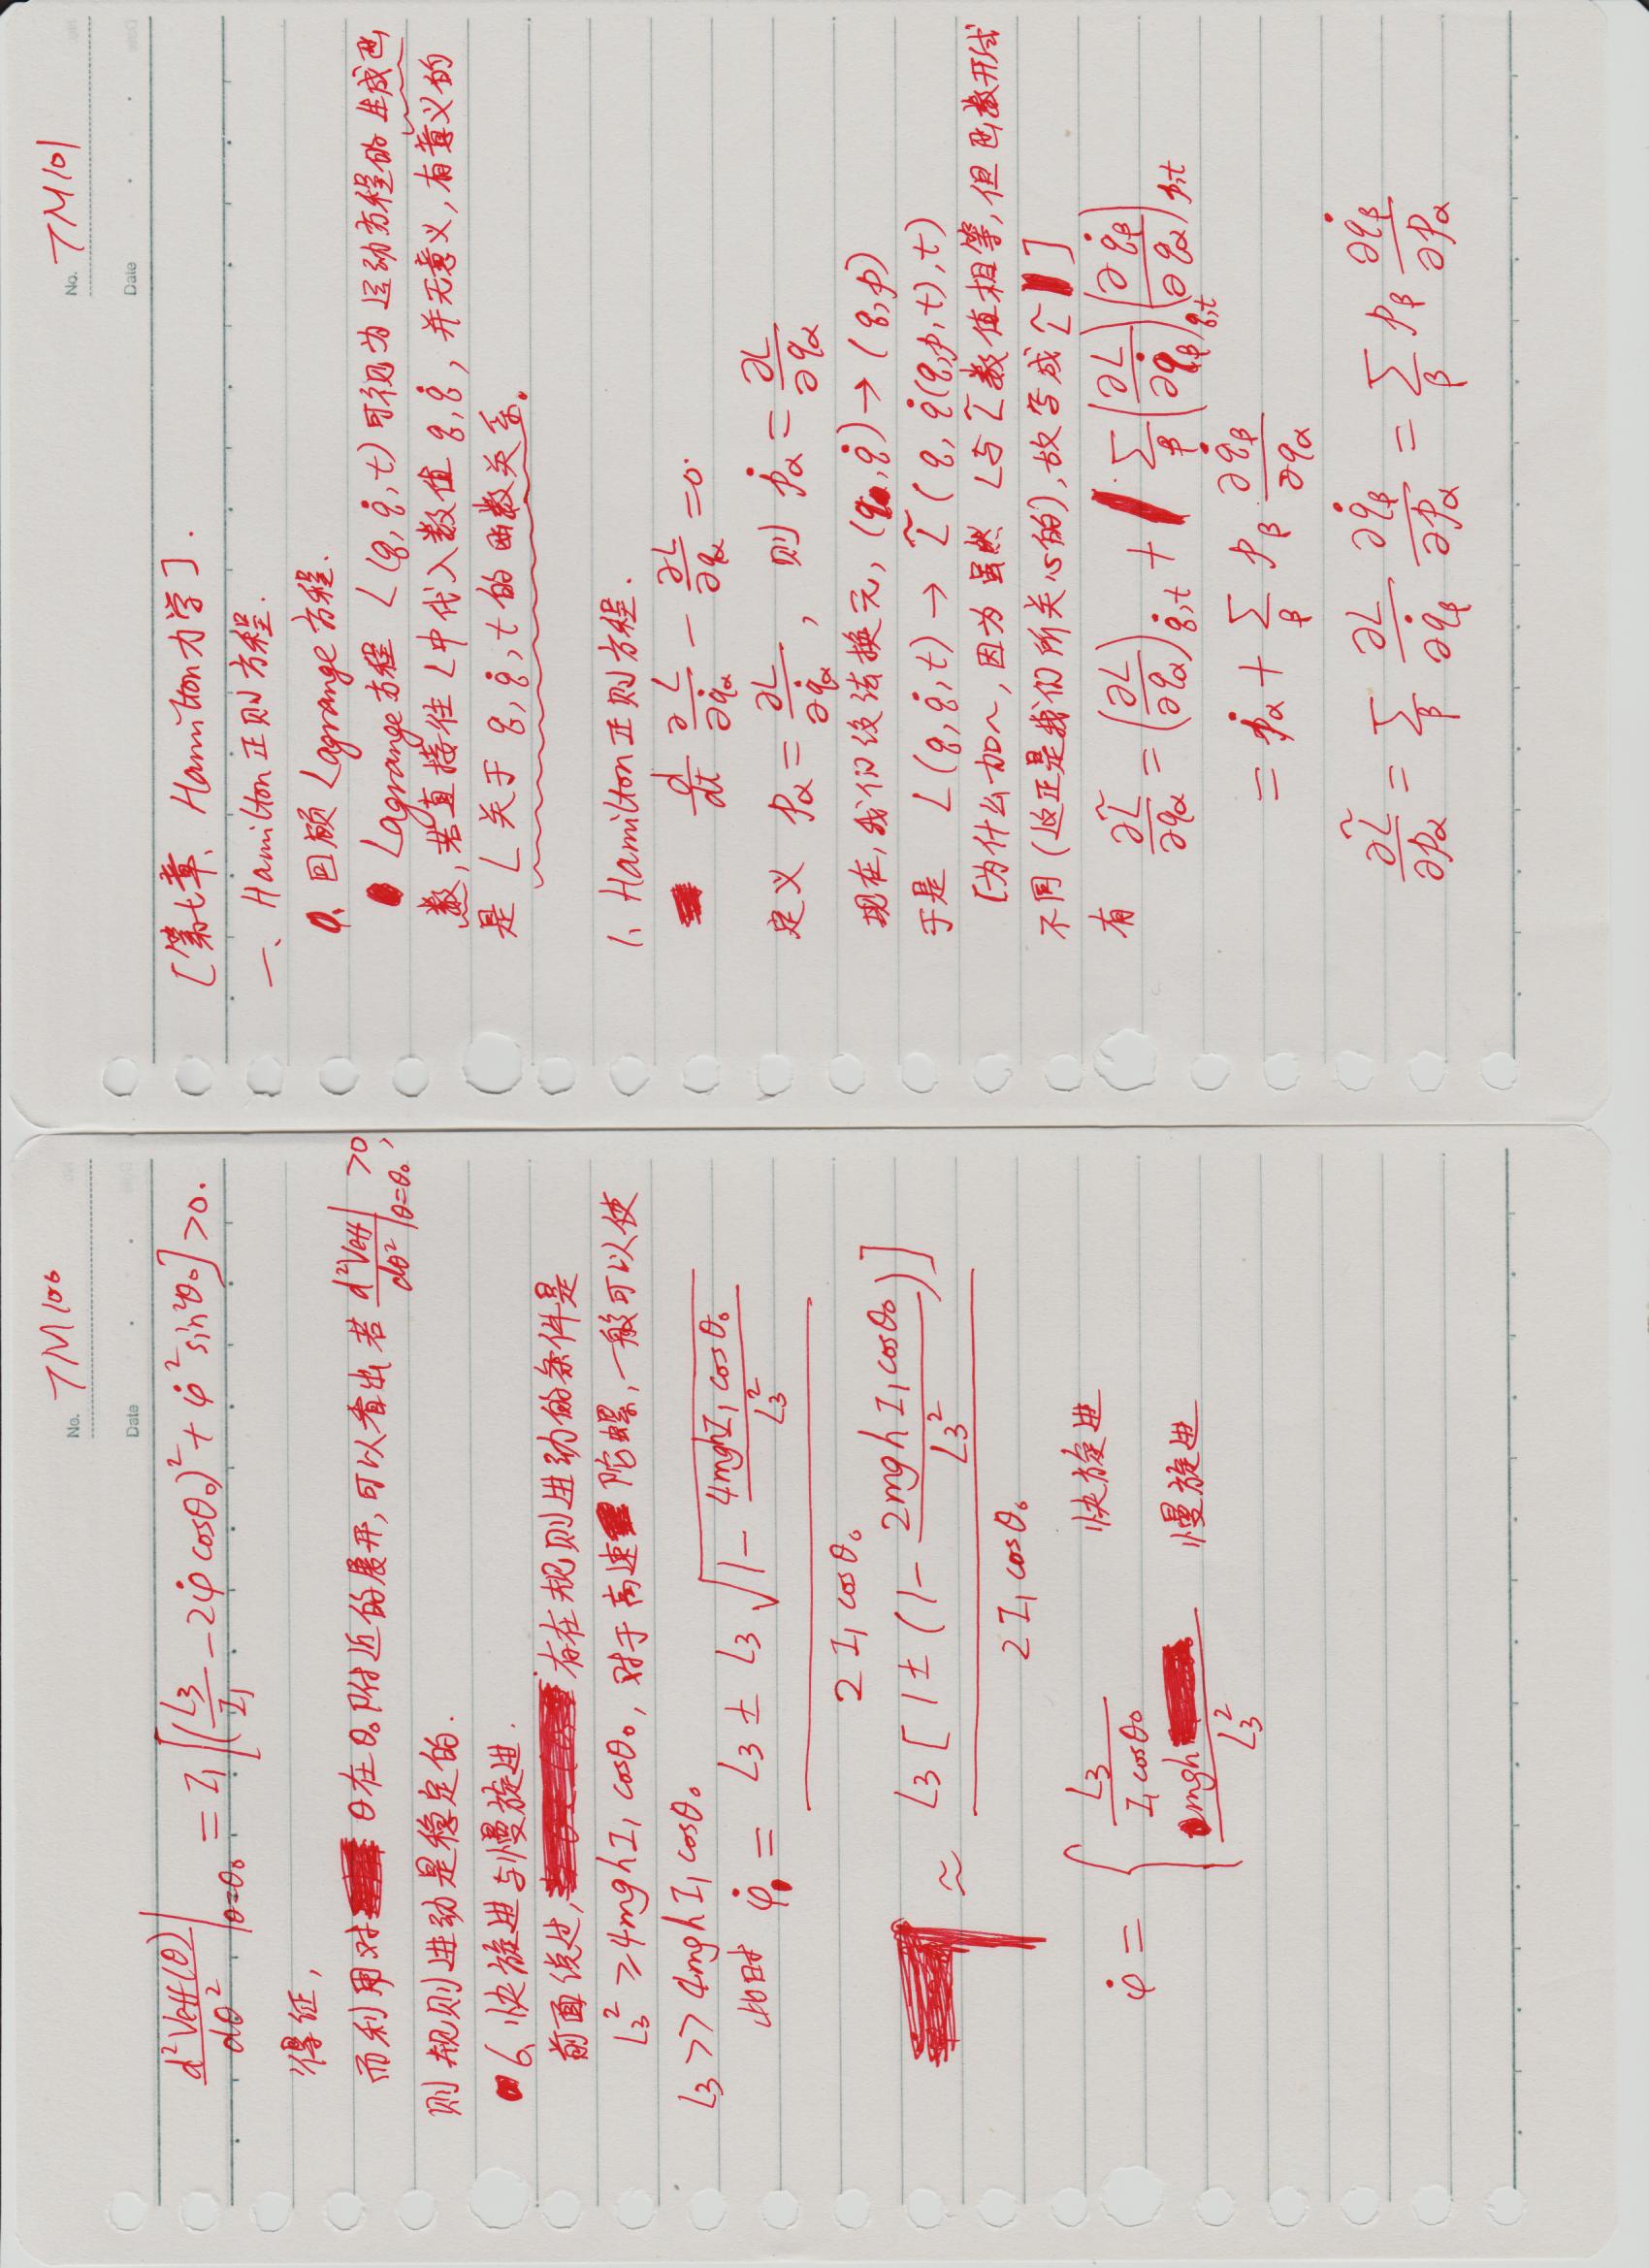 No. TM100
Date
d²Veff(θ)/dθ² |θ=θ₀ = I₁[(L₃/I₁ - 2φ̇ cosθ₀)² + φ̇² sin²θ₀] > 0.
得证,
而利用对 θ在θ₀附近的展开,可以看出若 d²Veff/dθ² |θ=θ₀ > 0,
则规则进动是稳定的.
6、快旋进与慢旋进.
前面说过, 存在规则进动的条件是
L₃² ≥ 4mghI₁ cosθ₀, 对于高速 陀螺, 一般可以使
L₃ >> 4mghI₁ cosθ₀
此时 φ̇ = (L₃ ± L₃ √(1 - 4mghI₁ cosθ₀/L₃²)) / (2I₁ cosθ₀)
≈ L₃[1 ± (1 - 2mghI₁ cosθ₀/L₃²)] / (2I₁ cosθ₀)
φ̇ = { L₃/(I₁ cosθ₀) 快旋进
mgh/L₃² 慢旋进
No. TM101
Date
[第七章、Hamilton力学].
一、Hamilton正则方程.
0、回顾Lagrange方程.
Lagrange方程 L(q, q̇, t)可视为运动方程的生成函
数, 若直接往L中代入数值q, q̇, 并无意义, 有意义的
是L关于q, q̇, t的函数关系。
1、Hamilton正则方程.
d/dt ∂L/∂q̇α - ∂L/∂qα = 0.
定义 pα = ∂L/∂q̇α, 则 ṗα = ∂L/∂qα
现在, 我们设法换元, (q, q̇) → (q, p)
于是 L(q, q̇, t) → L̃(q, q̇(q, p, t), t)
[为什么加~, 因为虽然 L与L̃数值相等, 但函数形式
不同(这正是我们所关心的), 故写成L̃]
有 ∂L̃/∂qα = (∂L/∂qα)q̇,t + Σβ (∂L/∂q̇β)q,t (∂q̇β/∂qα)p,t
= ṗα + Σβ pβ ∂q̇β/∂qα
∂L̃/∂pα = Σβ ∂L/∂q̇β ∂q̇β/∂pα = Σβ pβ ∂q̇β/∂pα